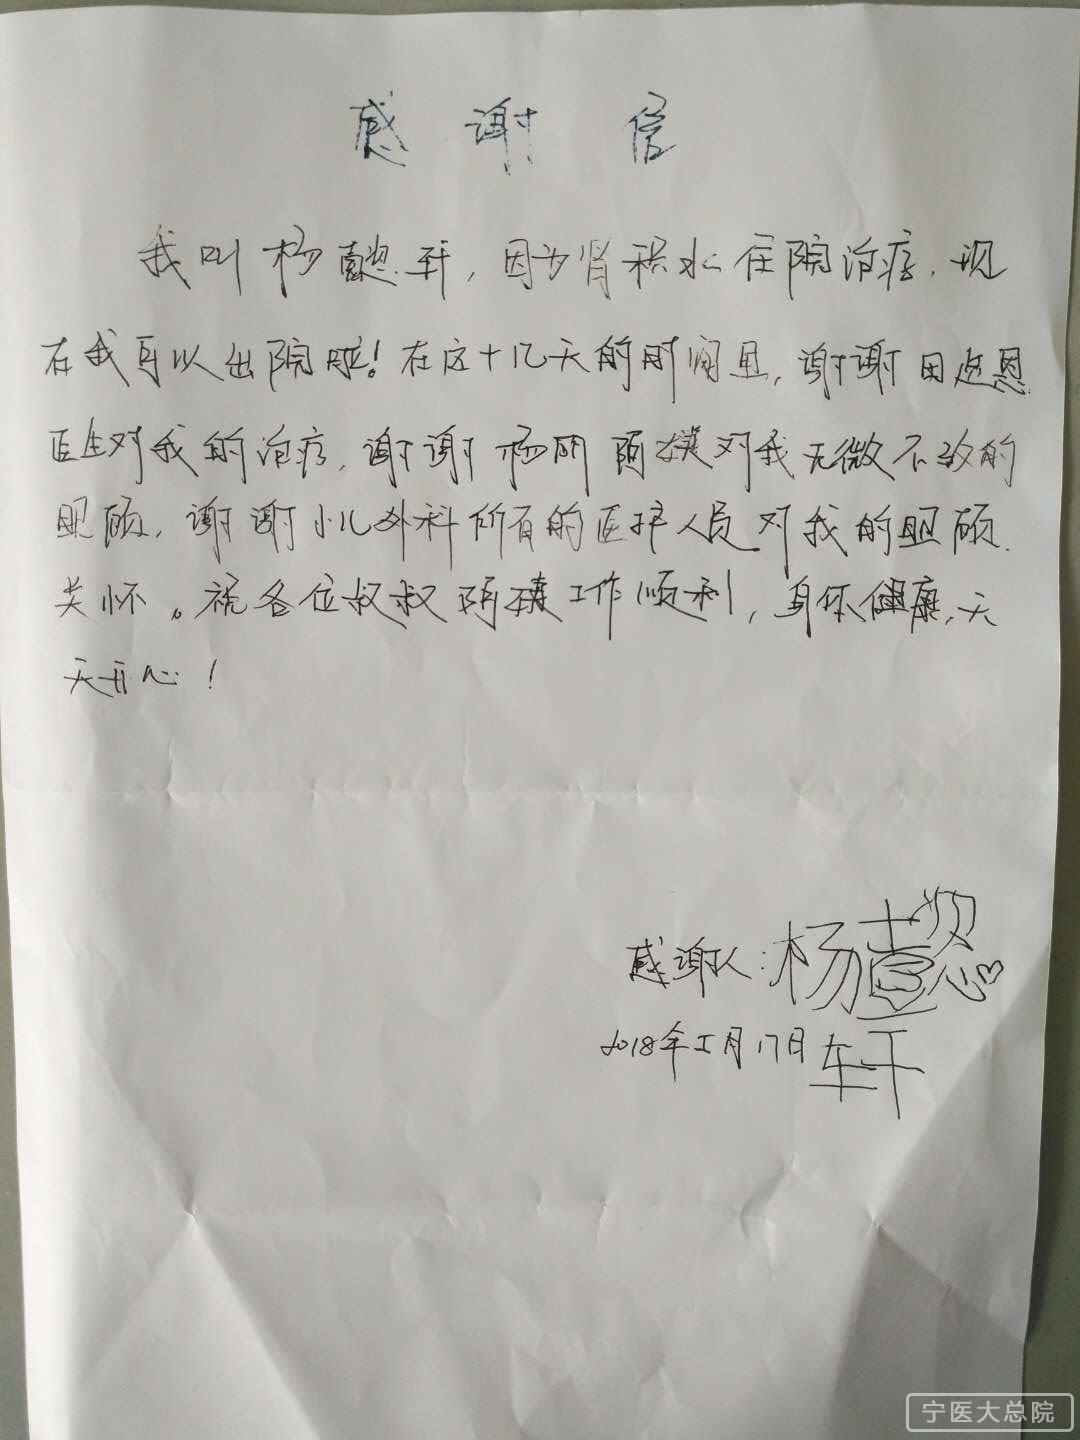 感谢信
我叫杨懿轩，因为肾积水住院治疗，现
在我可以出院啦！在这十几天的时间里，谢谢田恩
医生对我的治疗，谢谢杨阿姨对我无微不致的
照顾，谢谢小儿外科所有的医护人员对我的照顾、
关怀。祝各位叔叔阿姨工作顺利，身体健康，天
天开心！
感谢人：杨懿轩
2018年5月17日
宁医大总院